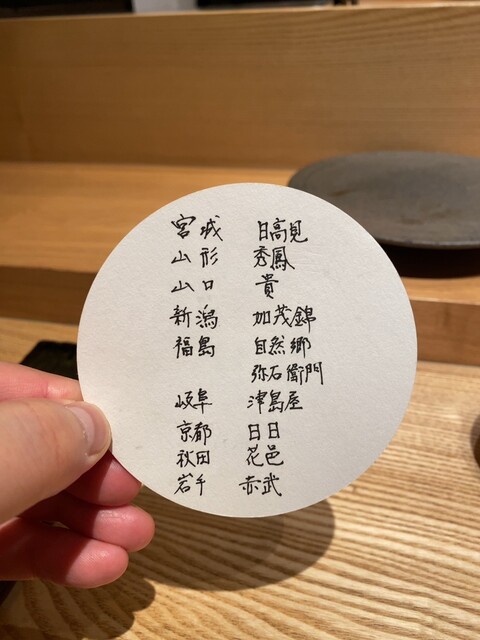 宮城 日高見
山形 秀鳳
山口 貴
新潟 加茂錦
福島 自然郷
弥右衛門
岐阜 津島屋
京都 日日
秋田 花邑
岩手 赤武